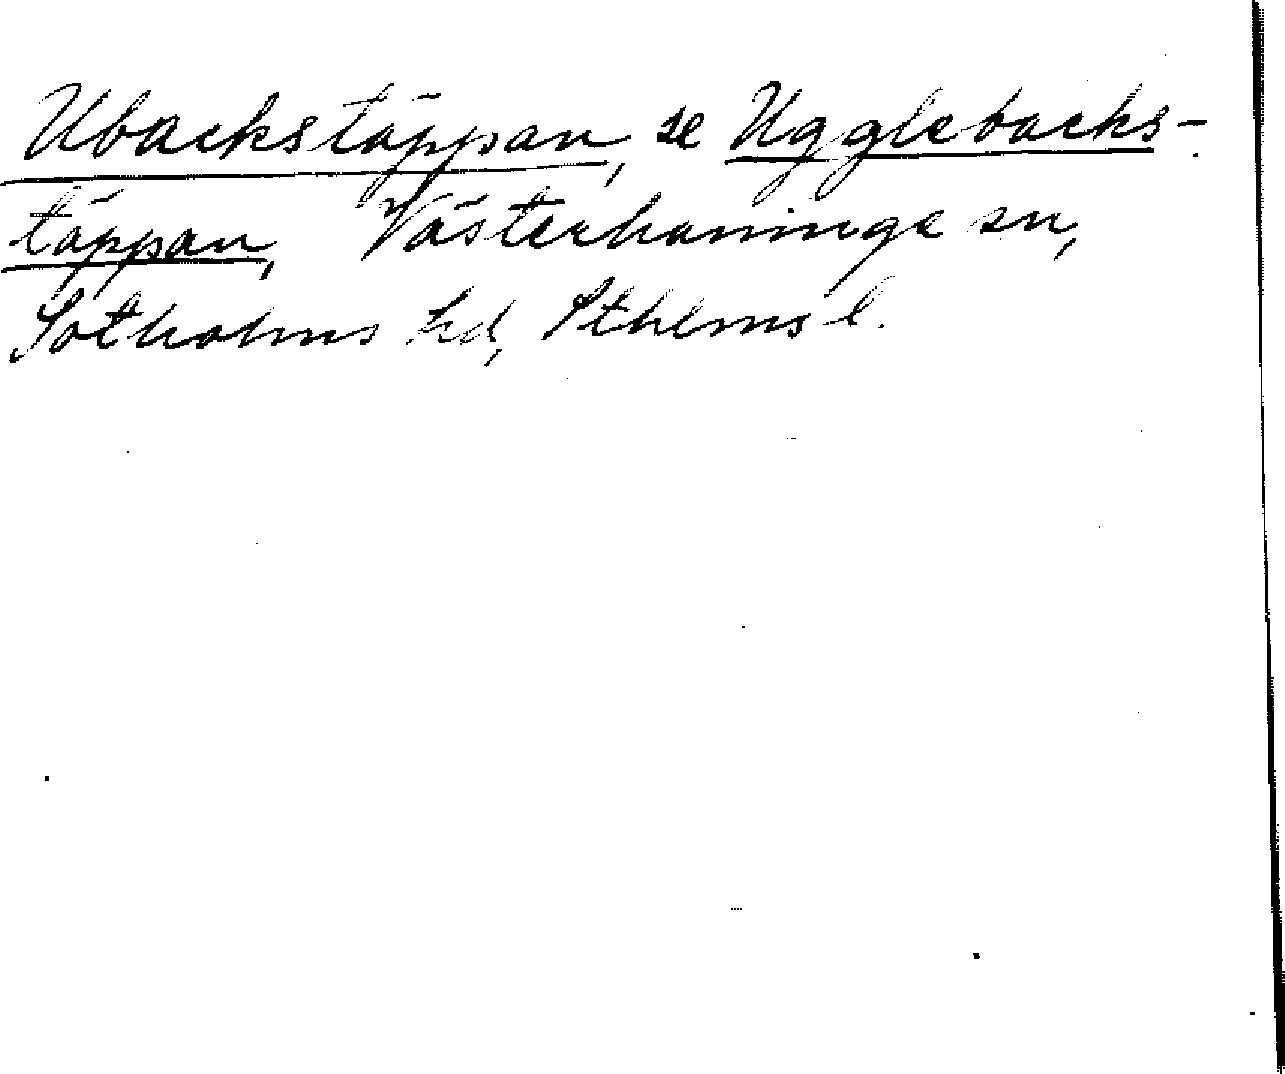 Ubackstäppan, se Ugglebacks-
täppan, Västerhaninge sn,
Sotholms hd, Sthlms l.